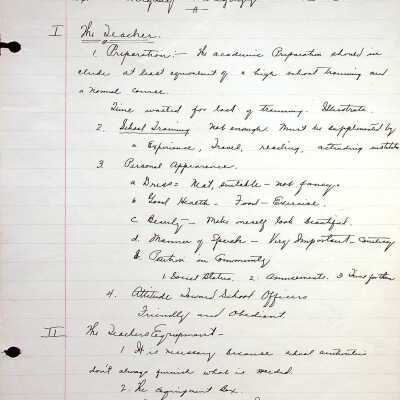 -A-
I The Teacher.
1. Preparation:- The academic Preparation should in
clude at least equivalent of a high school training and
a normal course.
Time wasted for lack of training. Illustrate.
2. School Training. Not enough. Must be supplemented by
a Experience, Travel, reading, attending institute
3 Personal Appearance.
a Dress = Neat, suitable - not fancy.
b Good Health - Food - Exercise.
c. Beauty - Make oneself look beautiful.
d. Manner of Speech - Very Important - Courtesy
Position in Community
1. Social Status. 2. Amusements. 3
4. Attitude Toward School Officers
Friendly and Obedient.
II The Teachers Equipment -
1 It is necessary because school authorities
don't always furnish what is needed.
2. The equipment box.